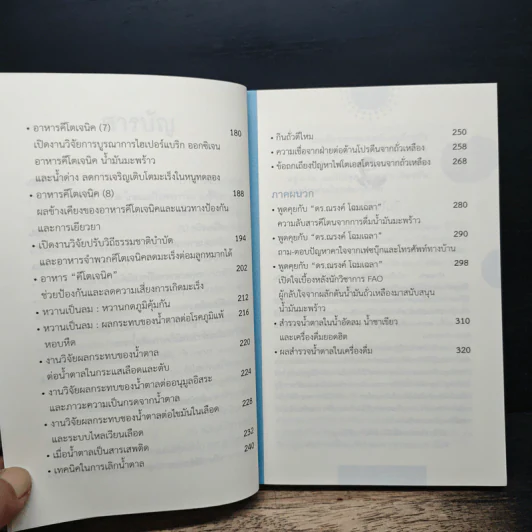 • อาหารคีโตเจนิค (7) 180
เปิดงานวิจัยการบูรณาการไฮเปอร์แบริก ออกซิเจน
อาหารคีโตเจนิค น้ำมันมะพร้าว
และน้ำด่าง ลดการเจริญเติบโตมะเร็งในหนูทดลอง
• อาหารคีโตเจนิค (8) 188
ผลข้างเคียงของอาหารคีโตเจนิคและแนวทางป้องกัน
และการเยียวยา
• เปิดงานวิจัยปรับวิถีธรรมชาติบำบัด 194
และอาหารจำพวกคีโตเจนิคลดมะเร็งต่อมลูกหมากได้
• อาหาร “คีโตเจนิค” 202
ช่วยป้องกันและลดความเสี่ยงการเกิดมะเร็ง
• หวานเป็นลม : หวานกดภูมิคุ้มกัน 212
• หวานเป็นลม : ผลกระทบของน้ำตาลต่อโรคภูมิแพ้ 216
หอบหืด
• งานวิจัยผลกระทบของน้ำตาล 220
ต่อน้ำตาลในกระแสเลือดและตับ
• งานวิจัยผลกระทบของน้ำตาลต่ออนุมูลอิสระ 224
และภาวะความเป็นกรดจากน้ำตาล
• งานวิจัยผลกระทบของน้ำตาลต่อไขมันในเลือด 228
และระบบไหลเวียนเลือด
• เมื่อน้ำตาลเป็นสารเสพติด 232
• เทคนิคในการเลิกน้ำตาล 240
• กินถั่วดีไหม 250
• ความเชื่อจากฝ่ายต่อต้านโปรตีนจากถั่วเหลือง 258
• ข้อถกเถียงปัญหาไฟโตเอสโตรเจนจากถั่วเหลือง 268
ภาคผนวก
• พูดคุยกับ “ดร.ณรงค์ โฉมเฉลา” 280
ความลับสารคีโตนจากการดื่มน้ำมันมะพร้าว
• พูดคุยกับ “ดร.ณรงค์ โฉมเฉลา” 290
ถาม-ตอบปัญหาคาใจจากเฟซบุ๊กและโทรศัพท์ทางบ้าน
• พูดคุยกับ “ดร.ณรงค์ โฉมเฉลา” 298
เปิดใจเบื้องหลังนักวิชาการ FAO
ผู้กลับใจจากผลักดันน้ำมันถั่วเหลืองมาสนับสนุน
น้ำมันมะพร้าว
• สำรวจน้ำตาลในน้ำอัดลม น้ำชาเขียว 310
และเครื่องดื่มยอดฮิต
• ผลสำรวจน้ำตาลในเครื่องดื่ม 320